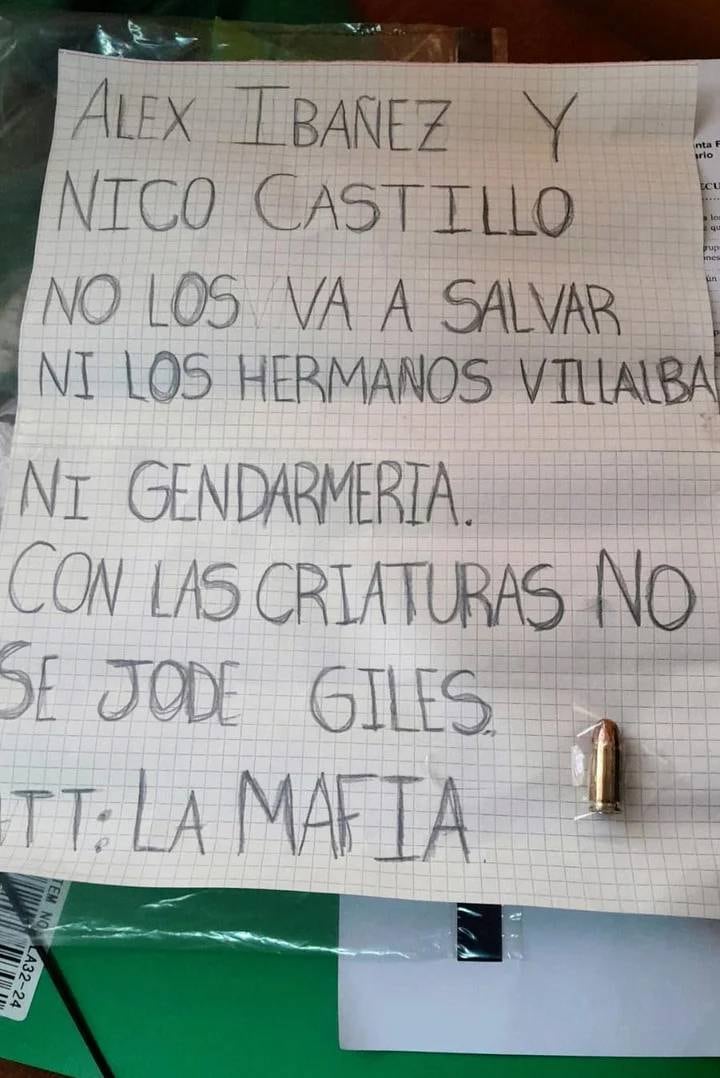 ALEX IBAÑEZ Y
NICO CASTILLO
NO LOS VA A SALVAR
NI LOS HERMANOS VILLALBA
NI GENDARMERIA.
CON LAS CRIATURAS NO
SE JODE GILES.
ATT: LA MAFIA.
nta F
ario
ECU
TEM NO
LA32-24